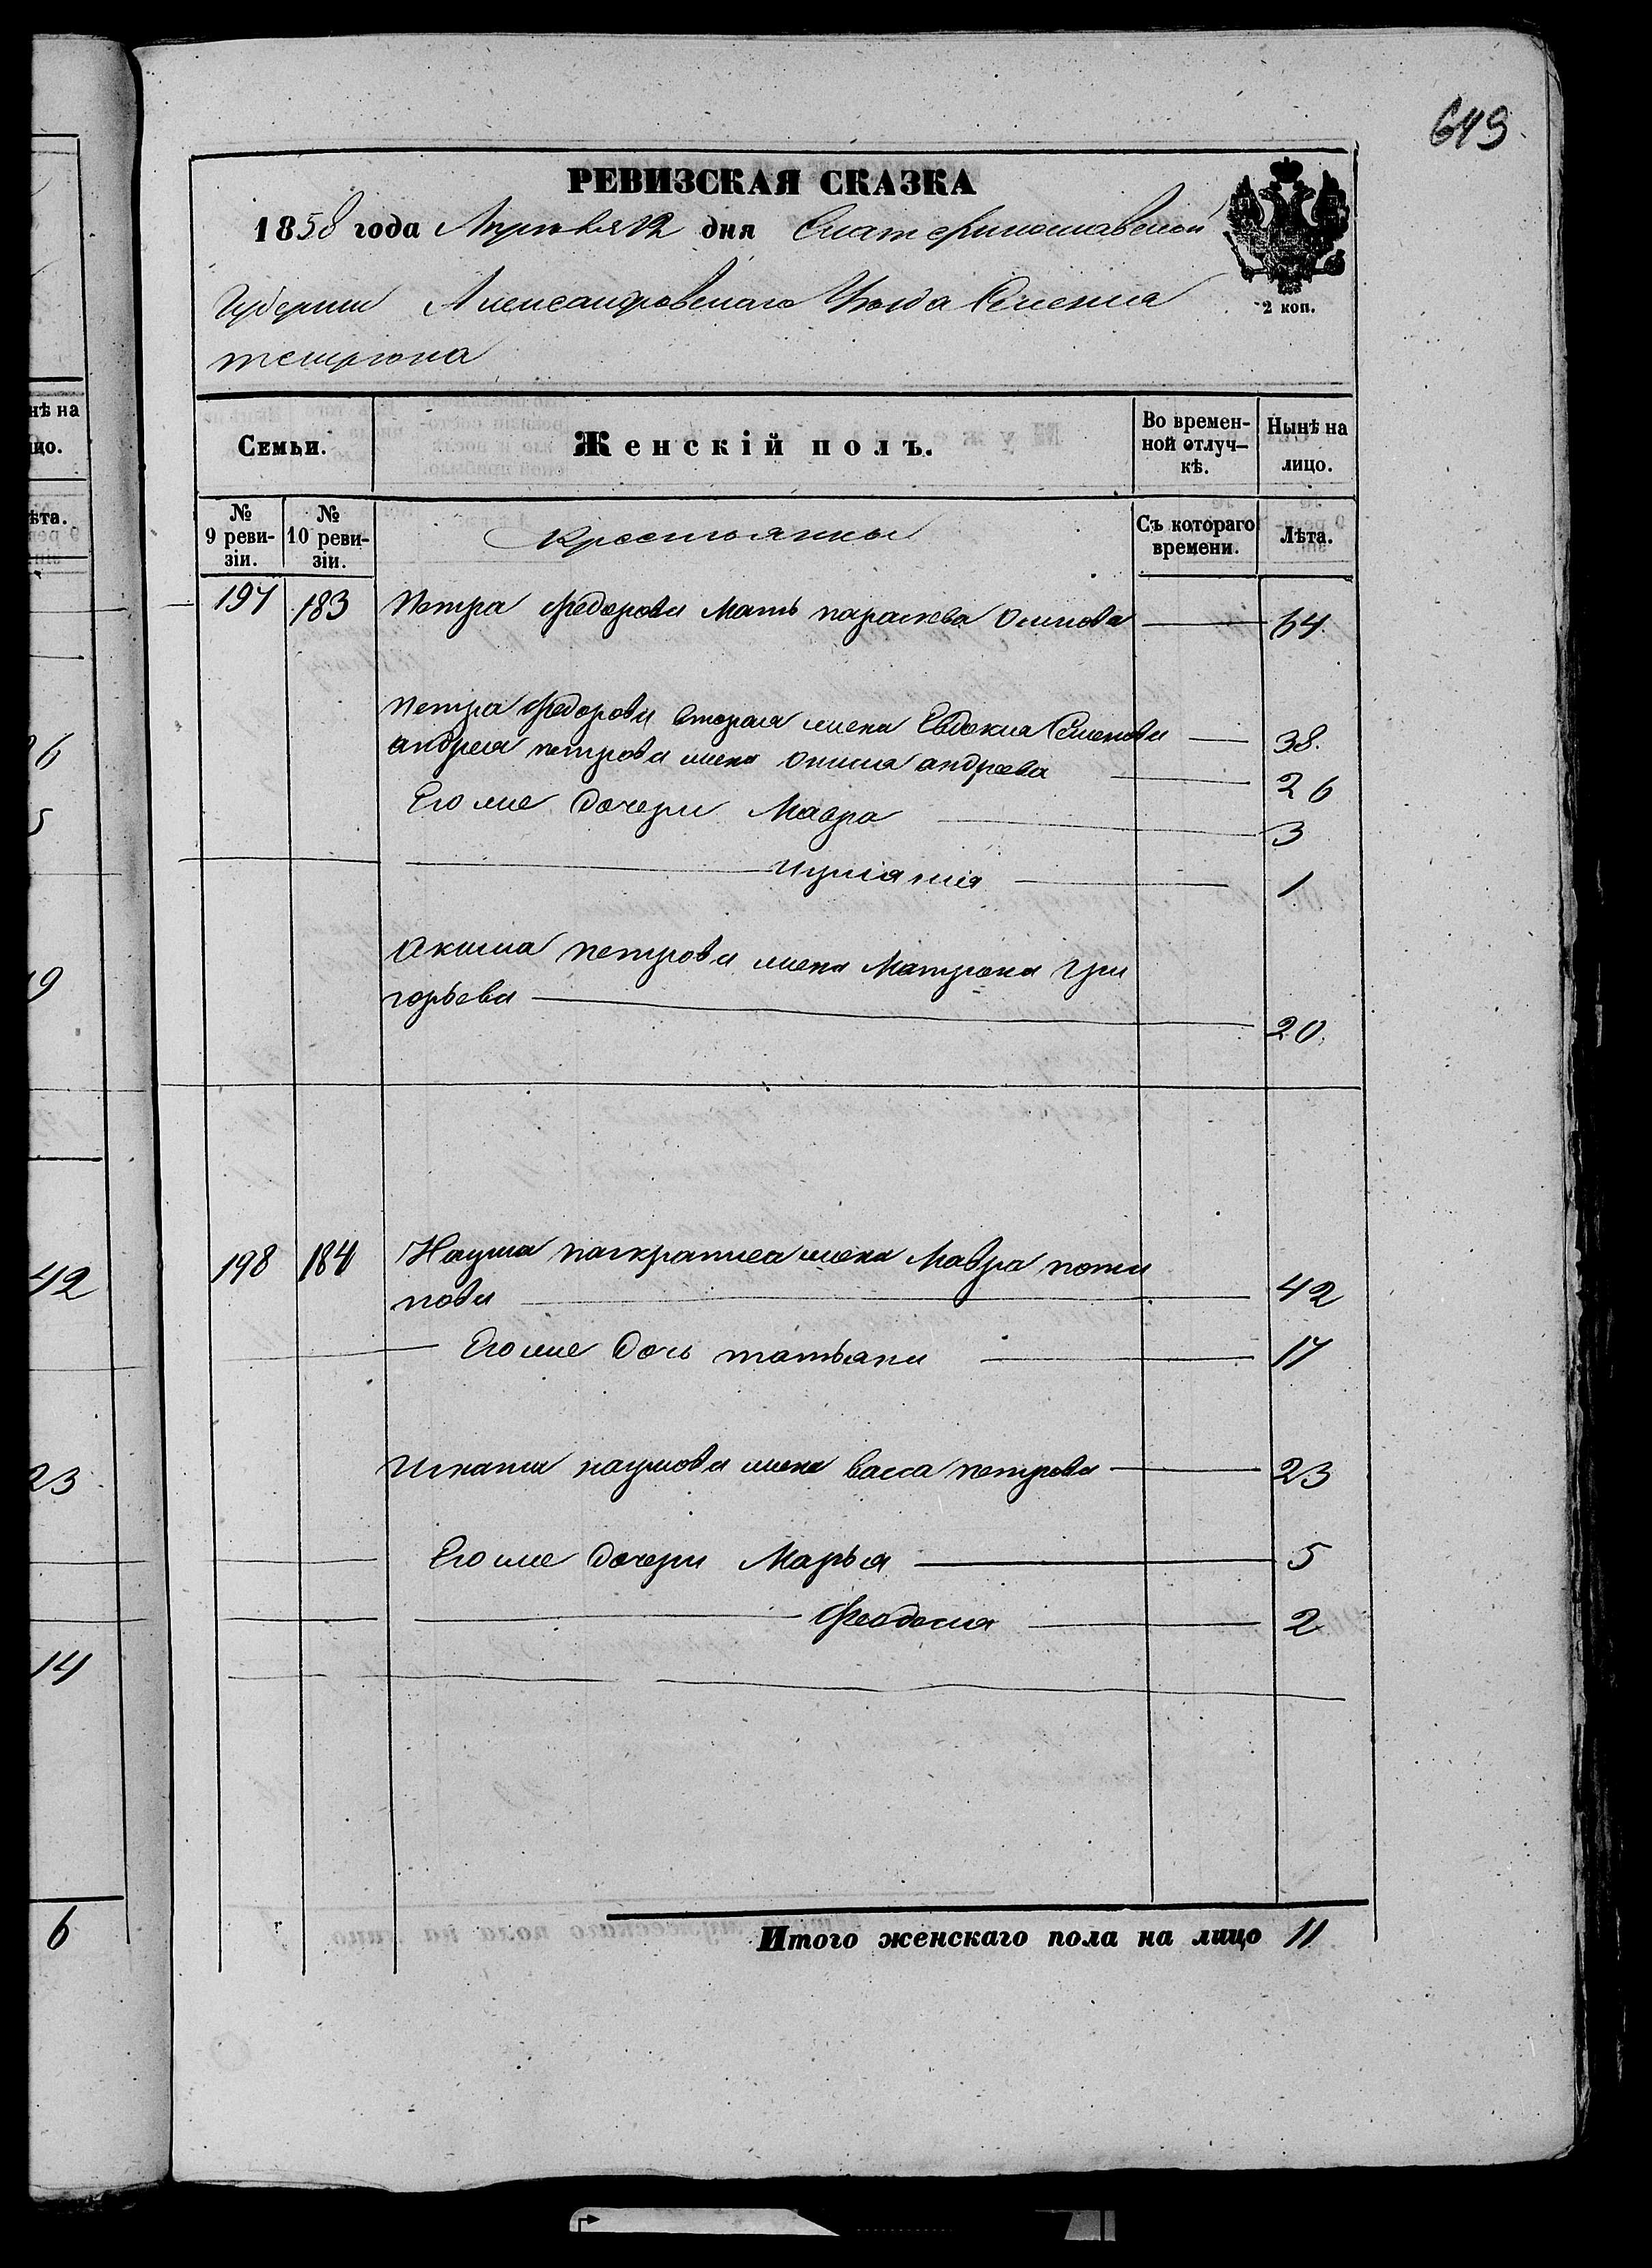 649
РЕВИЗСКАЯ СКАЗКА
1858 года Апреля 12 дня Екатеринославской
Губернии Александровского Уезда Селения
2 коп.
нѣ на
цо.
Семьи.
Женскій полъ.
Во времен-
ной отлуч-
кѣ.
Нынѣ на
лицо.
ѣта.
№
9 реви-
зіи.
№
10 реви-
зіи.
Крестьянки
Съ котораго
времени.
Лѣта.
197 183 Петра Федорова Мать параскева Осипова 64
Петра Федорова вторая жена Евдокия Семенова 38.
андрея петрова жена андреева 26
Его же дочери Мавра 3
Иулиания 1
Акима петрова жена Матрона Гри
горьева 20.
198 184 Наума панкратиева жена Мавра пота
пова 42
Его же дочь татьяна 17
Игната наумова жена васса петрова 23
Его же дочери Марья 5
Феодосия 2
6
5
9
42
23
14
6
Итого женскаго пола на лицо 11